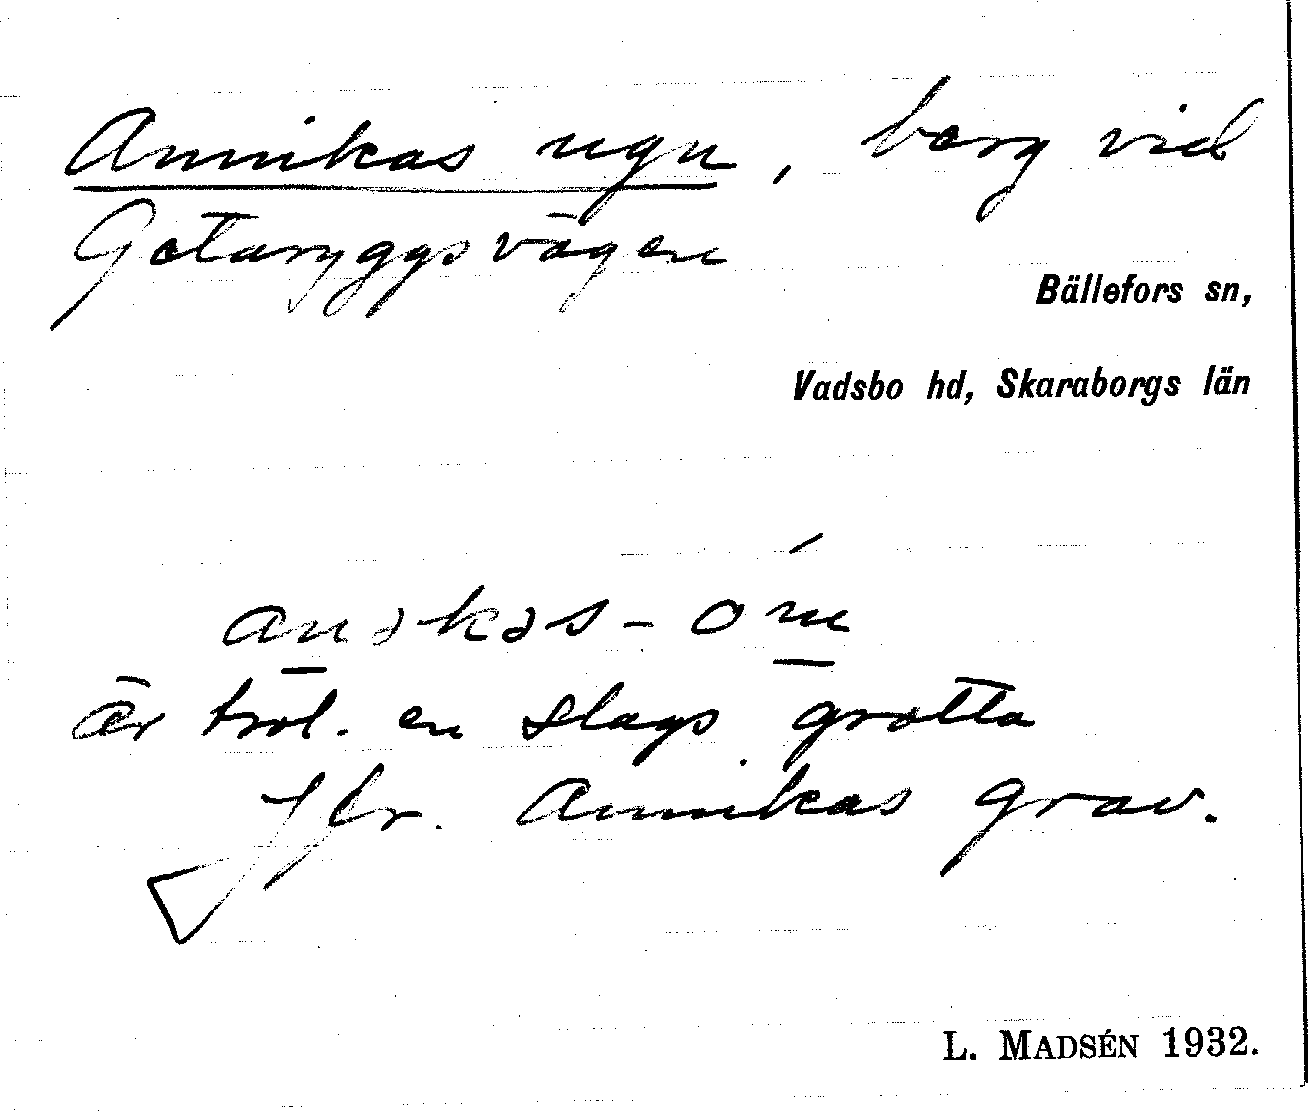 Annikas ugn, berg vid
Getaryggsvägen
Bällefors sn,
Vadsbo hd, Skaraborgs län
anəkəs-óm
är trol. en slags grotta
Jfr. Annikas grav.
L. MADSÉN 1932.